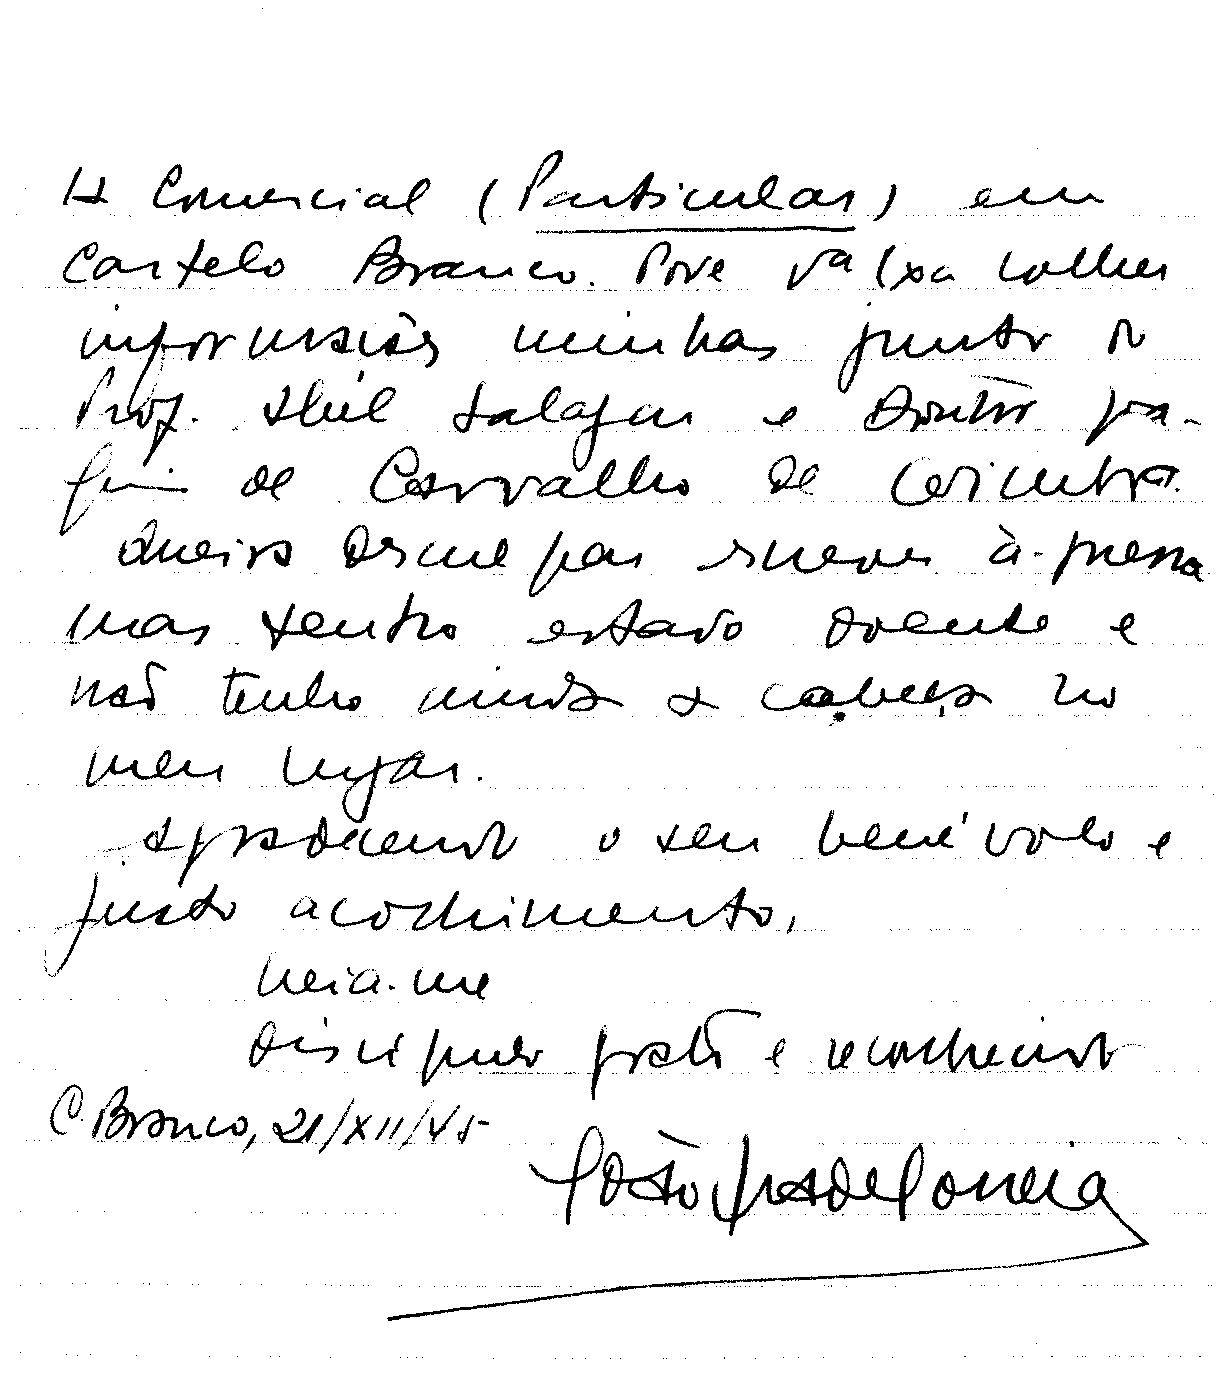 Comercial (Particular) em
Castelo Branco. Pode V.ª Ex.ª colher
informações minhas junto do
Prof. Abel Salazar e Doutor Joa-
quim de Carvalho de Coimbra.
Queira desculpar escrever à-pressa
mas tenho estado doente e
não tenho ainda a cabeça no
meu lugar.
Agradecendo o seu benévolo e
justo acolhimento,
creia-me
discípulo grato e reconhecido
C. Branco, 21/XII/45
João de Correia